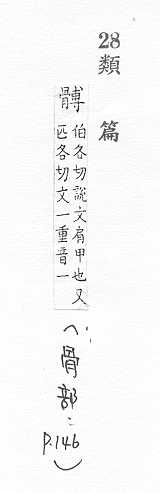 28 類篇
髆 伯各切說文肩甲也又
匹各切文一重音一
(骨部: p.146)